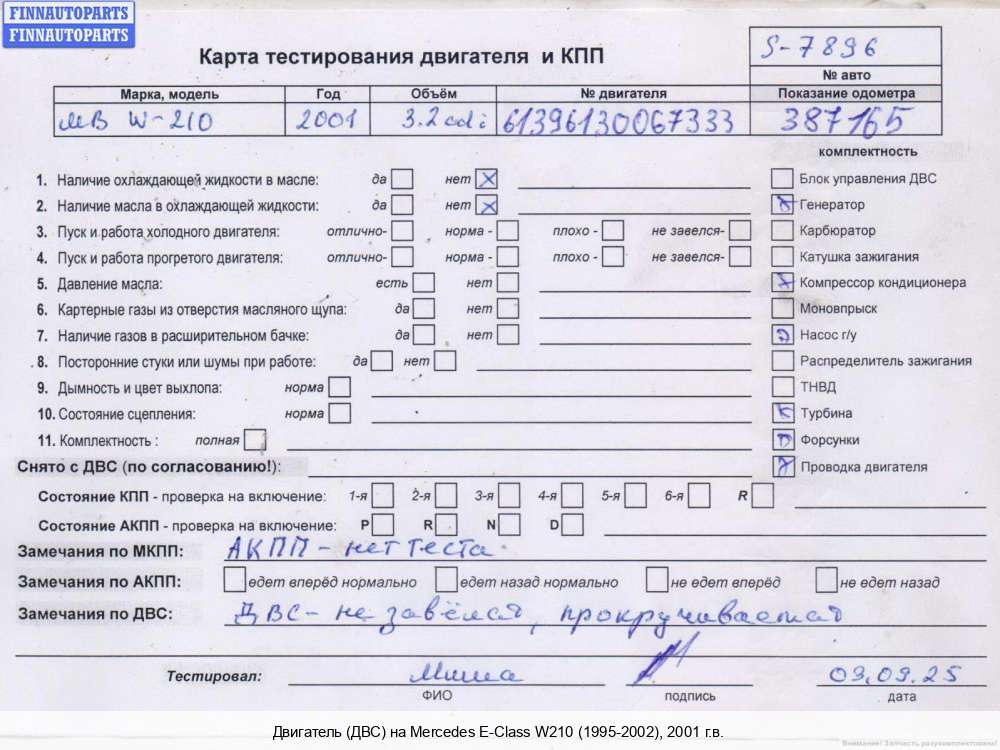 FINNAUTOPARTS
FINNAUTOPARTS
Карта тестирования двигателя и КПП
S-7896
№ авто
Марка, модель Год Объём № двигателя Показание одометра
МВ W-210 2001 3.2 cdi 61396130067333 387165
комплектность
1. Наличие охлаждающей жидкости в масле: да нет Блок управления ДВС
2. Наличие масла в охлаждающей жидкости: да нет Генератор
3. Пуск и работа холодного двигателя: отлично- норма - плохо - не завелся- Карбюратор
4. Пуск и работа прогретого двигателя: отлично- норма - плохо - не завелся- Катушка зажигания
5. Давление масла: есть нет Компрессор кондиционера
6. Картерные газы из отверстия масляного щупа: да нет Моновпрыск
7. Наличие газов в расширительном бачке: да нет Насос г/у
8. Посторонние стуки или шумы при работе: да нет Распределитель зажигания
9. Дымность и цвет выхлопа: норма ТНВД
10. Состояние сцепления: норма Турбина
11. Комплектность : полная Форсунки
Снято с ДВС (по согласованию!): Проводка двигателя
Состояние КПП - проверка на включение: 1-я 2-я 3-я 4-я 5-я 6-я R
Состояние АКПП - проверка на включение: P R N D
Замечания по МКПП: АКПП - нет теста
Замечания по АКПП: едет вперёд нормально едет назад нормально не едет вперёд не едет назад
Замечания по ДВС: ДВС - не завёлся, прокручивается
Тестировал: Миша 03.09.25
ФИО подпись дата
Двигатель (ДВС) на Mercedes E-Class W210 (1995-2002), 2001 г.в.
Внимание! Запчасть разукомплектована!